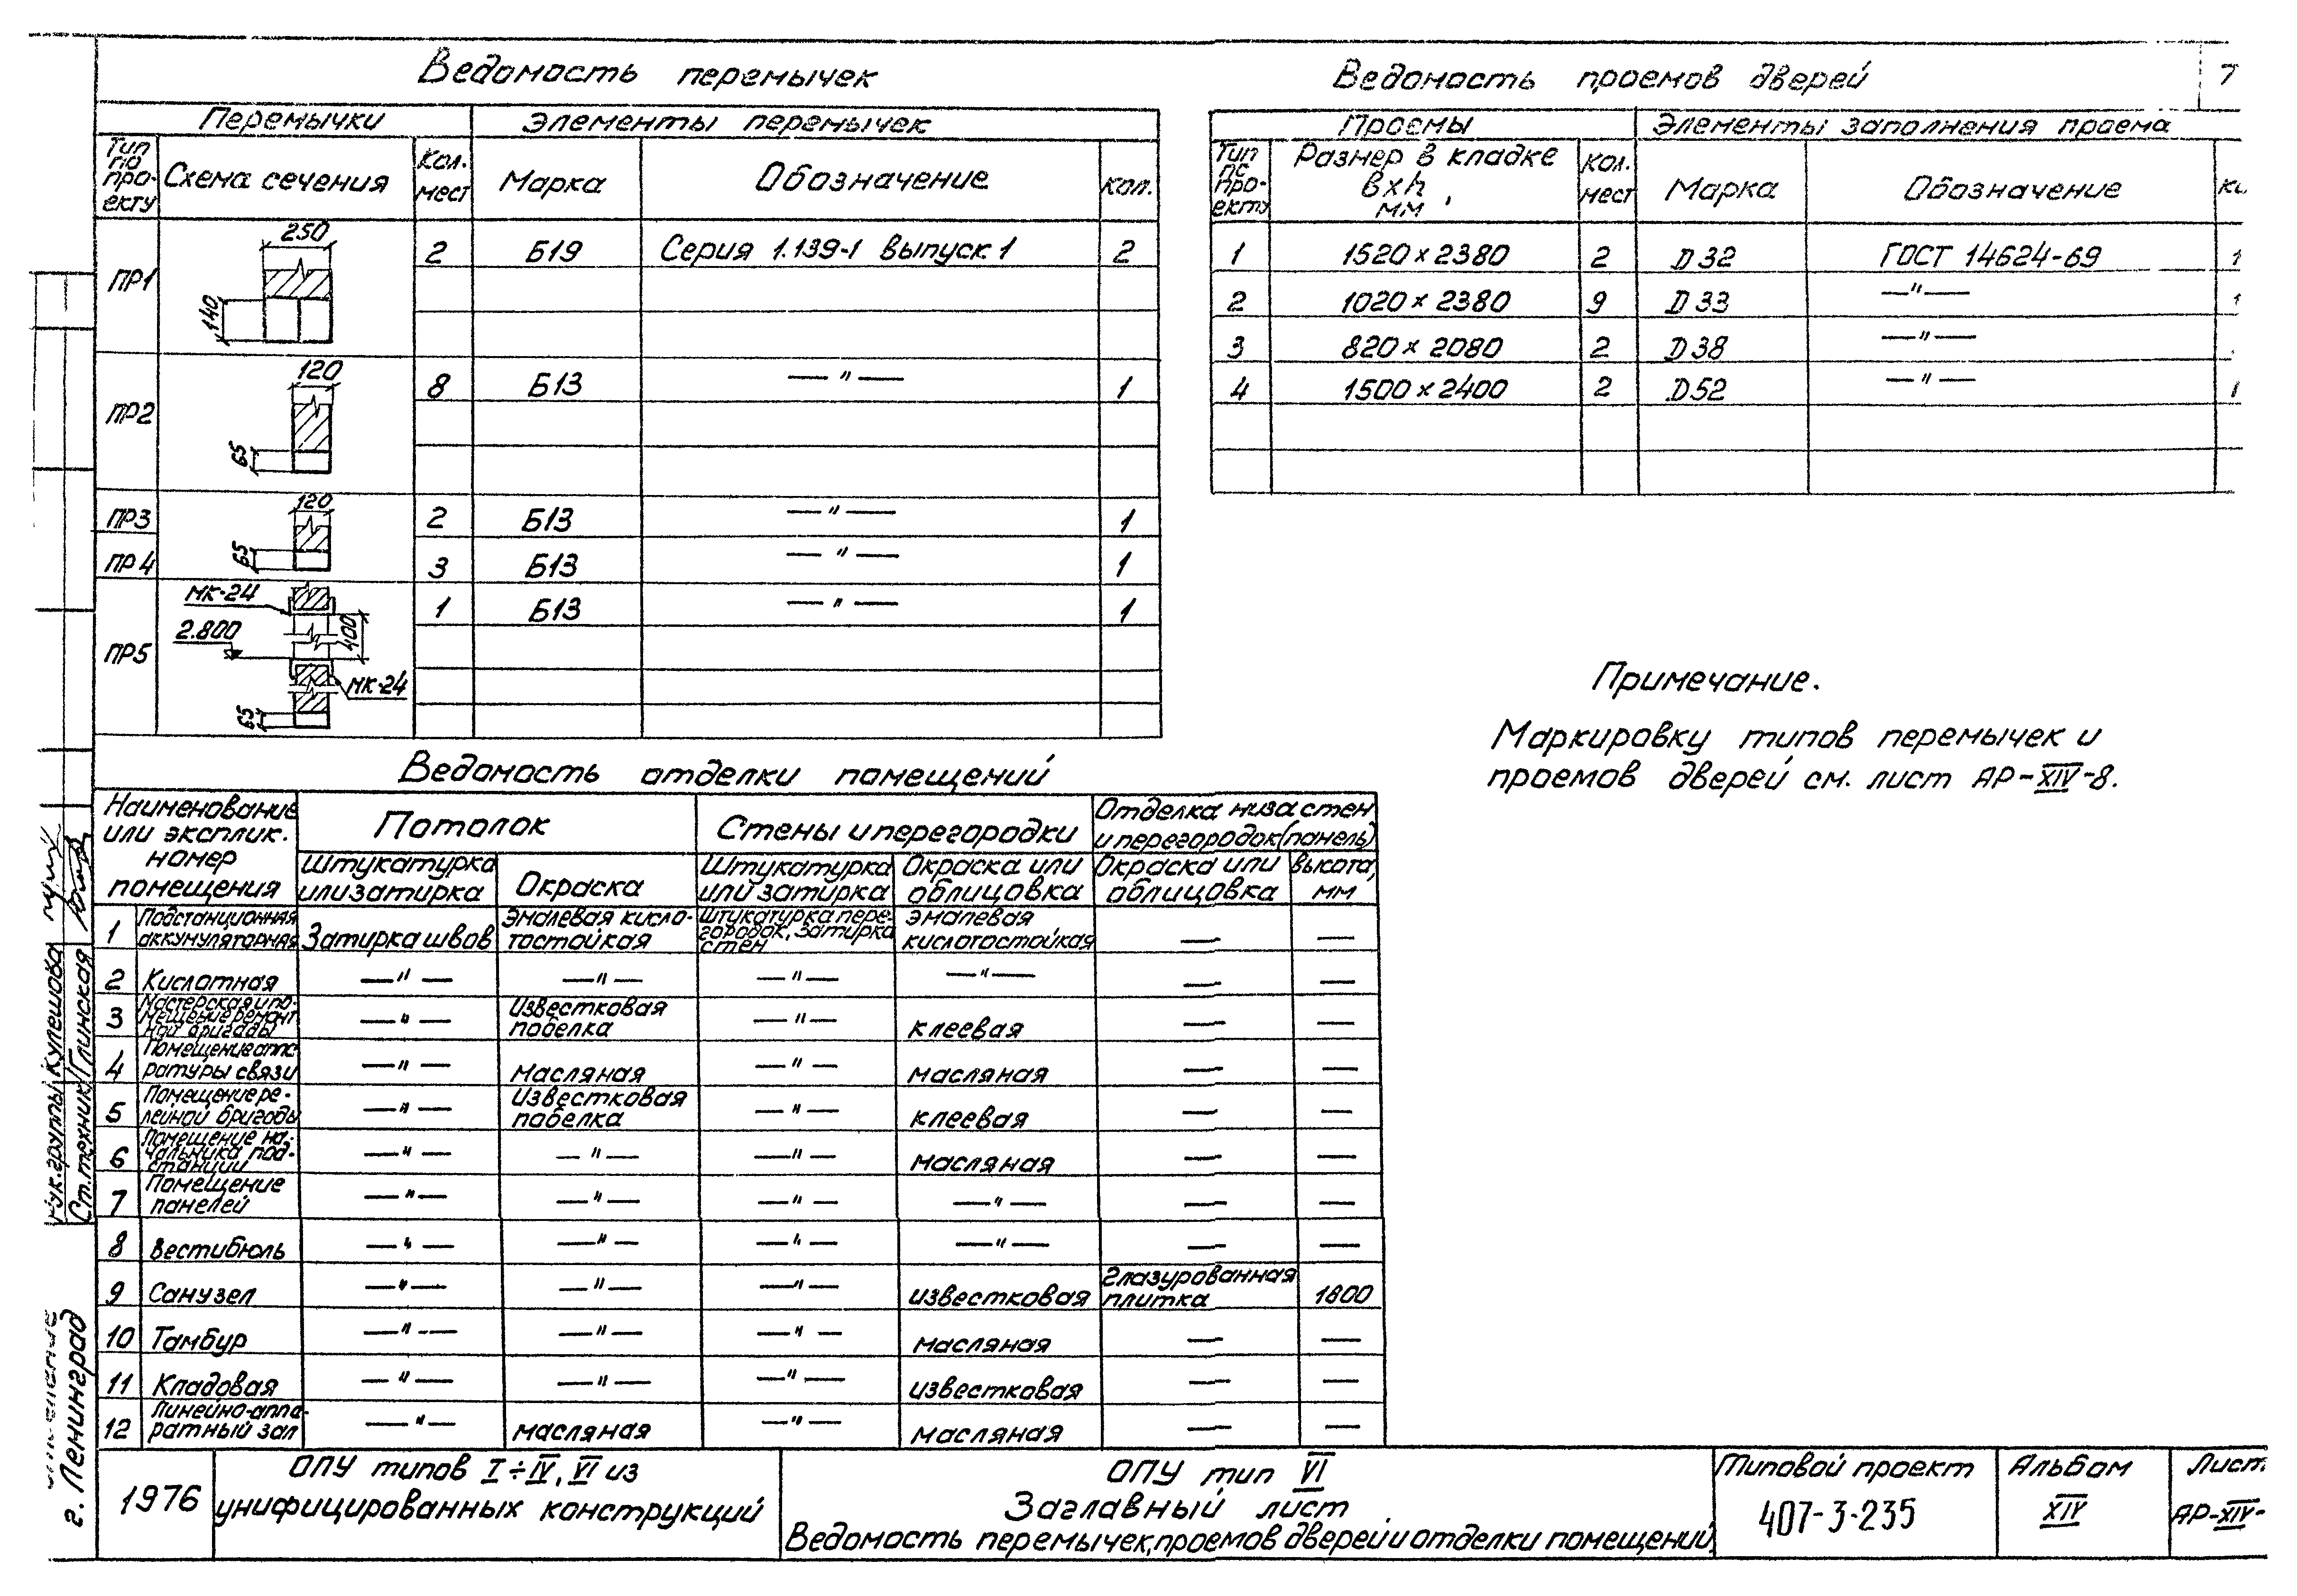 Ведомость перемычек
Перемычки
Элементы перемычек
Тип по проекту
Схема сечения
Кол. мест
Марка
Обозначение
Кол.
ПР1
250
140
2 Б19 Серия 1.139-1 выпуск 1 2
ПР2
120
65
8 Б13 —"— 1
ПР3
120
65
2 Б13 —"— 1
ПР4
3 Б13 —"— 1
ПР5
МК-24
2.800
400
МК-24
65
1 Б13 —"— 1
Ведомость проемов дверей
7
Проемы
Элементы заполнения проема
Тип по проекту
Размер в кладке
вxh,
мм
Кол. мест
Марка
Обозначение
1 1520×2380 2 Д32 ГОСТ 14624-69 1
2 1020×2380 9 Д33 —"— 1
3 820×2080 2 Д38 —"—
4 1500×2400 2 Д52 —"— 1
Примечание.
Маркировку типов перемычек и
проемов дверей см. лист АР-XIV-8.
Ведомость отделки помещений
Наименование
или эксплик.
номер
помещения
Потолок
Стены и перегородки
Отделка низа стен
и перегородок (панель)
Штукатурка
или затирка
Окраска
Штукатурка
или затирка
Окраска или
облицовка
Окраска или
облицовка
Высота,
мм
1 Подстанционная аккумуляторная Затирка швов Эмалевая кислотостойкая Штукатурка перегородок, затирка стен Эмалевая кислотостойкая — —
2 Кислотная —"— —"— —"— —"— — —
3 Мастерская и помещение ремонтной бригады —"— Известковая побелка —"— клеевая — —
4 Помещение аппаратуры связи —"— масляная —"— масляная — —
5 Помещение релейной бригады —"— Известковая побелка —"— клеевая — —
6 Помещение начальника подстанции —"— —"— —"— масляная — —
7 Помещение панелей —"— —"— —"— —"— — —
8 Вестибюль —"— —"— —"— —"— — —
9 Санузел —"— —"— —"— известковая Глазурованная плитка 1800
10 Тамбур —"— —"— —"— масляная — —
11 Кладовая —"— —"— —"— известковая — —
12 Линейно-аппаратный зал —"— масляная —"— масляная — —
Рук. группы Кулешова
Ст. техник Глинская
г. Ленинград
1976
ОПУ типов I÷IV, VI из
унифицированных конструкций
ОПУ тип VI
Заглавный лист.
Ведомость перемычек, проемов дверей и отделки помещений.
Типовой проект
407-3-235
Альбом
XIV
Лист
АР-XIV-